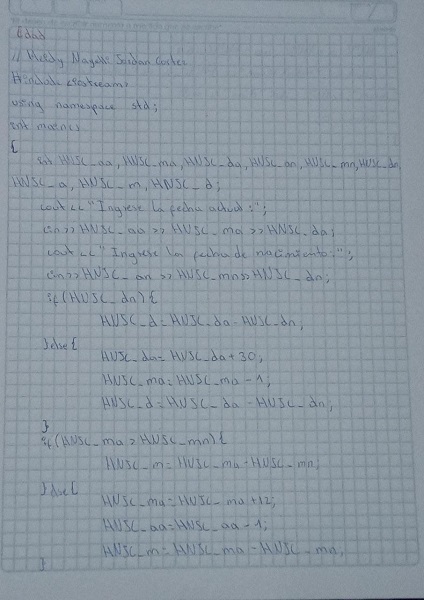 Edad
// Meldy Magali Jordan Cortes
#include <iostream>
using namespace std;
int main()
{
int HNSC_aa, HNSC_ma, HNSC_da, HNSC_an, HNSC_mn, HNSC_dn,
HNSC_a, HNSC_m, HNSC_d;
cout << "Ingrese la fecha actual:";
cin >> HNSC_aa >> HNSC_ma >> HNSC_da;
cout << "Ingrese la fecha de nacimiento:";
cin >> HNSC_an >> HNSC_mn >> HNSC_dn;
if (HNSC_dn) {
HNSC_d = HNSC_da - HNSC_dn;
} else {
HNSC_da = HNSC_da + 30;
HNSC_ma = HNSC_ma - 1;
HNSC_d = HNSC_da - HNSC_dn;
}
if (HNSC_ma > HNSC_mn) {
HNSC_m = HNSC_ma - HNSC_mn;
} else {
HNSC_ma = HNSC_ma + 12;
HNSC_aa = HNSC_aa - 1;
HNSC_m = HNSC_ma - HNSC_mn;
}